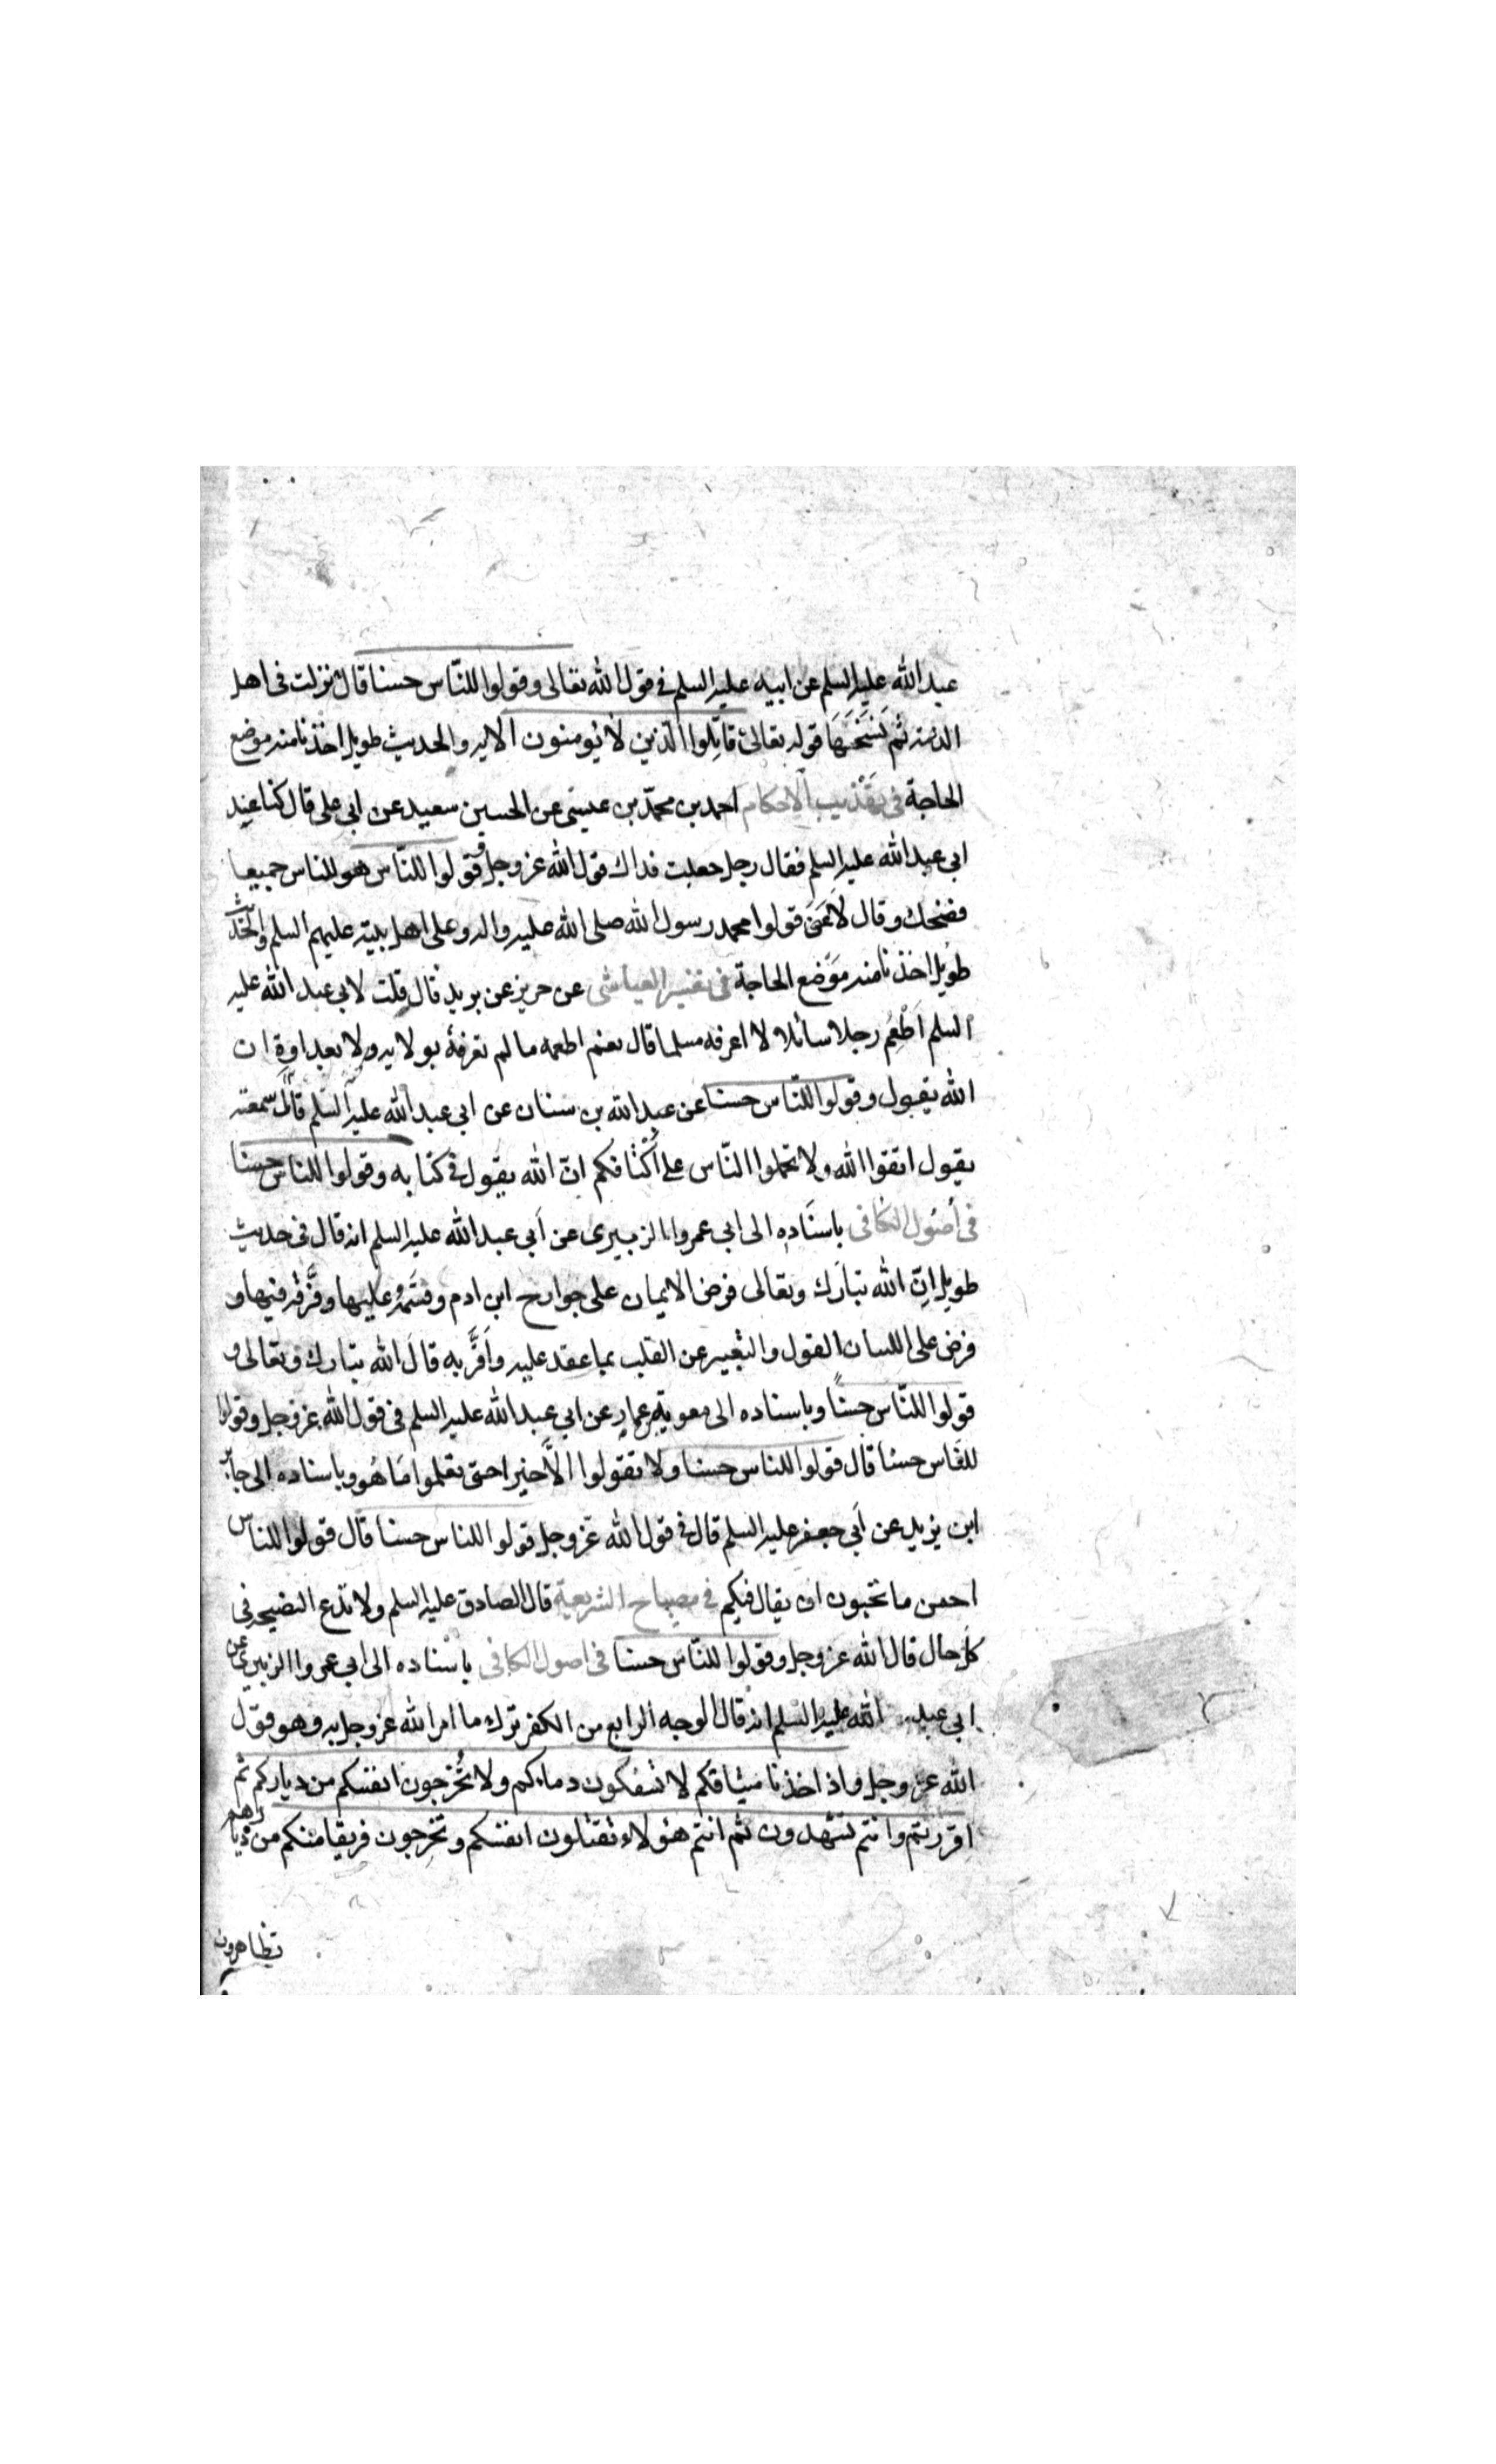 عبد الله عليه السلم عن ابيه عليه السلم في قول الله تعالى وقولوا للنّاس حسنا قال نزلت في اهل
الذمّة ثم نَسَخَهَا قوله تعالى قاتِلوا الّذين لا يُومنون الآيه والحديث طويل اخذنا منه موضع
الحاجة في تهذيب الاحكام احمد بن محمّد بن عيسى عن الحسين سعيد عن ابي على قال كنا عند
ابي عبد الله عليه السلم فقال رجل جعلت فداك قول الله عز وجل وقولوا للنّاس هو للناس جميعا
فضحك وقال لا عَنى قولوا محمد رسول الله صلى الله عليه واله وعلى اهل بيته عليهم السلم والحديث
طويل اخذنا منه مَوضع الحاجة في تفسير العياشى عن حريز عن بريد قال قلت لابي عبد الله عليه
السلم اَطْعِم رجلا سائلا لا اعرفه مسلما قال نعم اطعمه ما لم تعرفهُ بولايه ولا بعداوةٍ ان
الله يقول وقولوا للنّاس حسنا عن عبد الله بن سنان عن ابي عبد الله عليه السّلم قال سمعته
يقول اتقوا الله ولا تحملوا النّاس على اكْتافكم انّ الله يقول في كتابه وقولوا للناس حسنا
في اُصُول الكافى باسنَادِه الى ابي عمروا الزبيرى عن اَبي عبد الله عليه السلم انه قال في حديث
طويل انّ الله تبارَك وتعالى فرض الايمان على جوارح ابن ادم وقسَمه عليها وفَرَّقه فيها و
فرض على اللسان القول والتعبير عن القلب بما عقد عليه واَقَرَّ به قالَ الله تبارك وتعالى و
قولوا للنّاس حسناً وباسناده الى معوية بن عمار عن ابي عبد الله عليه السلم في قول الله عز وجل وقولوا
للنّاس حسنا قال قولوا للناس حسنا ولا تقولوا الاّ خيرا حتى تعلموا مَا هُو وباسناده الى جابر
ابن يزيد عن اَبي جعفر عليه السلم قال في قول الله عَز وجل قولوا للناس حسنا قال قولوا للناس
احسن ما تحبون ان يقال فيكم في مصباح الشريعة قال الصادق عليه السلم ولا تدع النصيحه في
كل حال قال الله عز وجل وقولوا للنّاس حسنا في اصول الكافى باسناده الى ابي عمروا الزبيرى عن
ابي عبد الله عليه السلم انه قال الوجه الرابع من الكفر ترك ما امر الله عز وجل به وهو قول
الله عز وجل واذ اخذنا ميثاقكم لا تسفكون دماءكم ولا تُخرجون انفسكم من دياركم ثم
اقررتم وانتم تشهدون ثم انتم هؤلاء تقتلون انفسكم وتخرجون فريقا منكم من ديارهم
تظاهرون